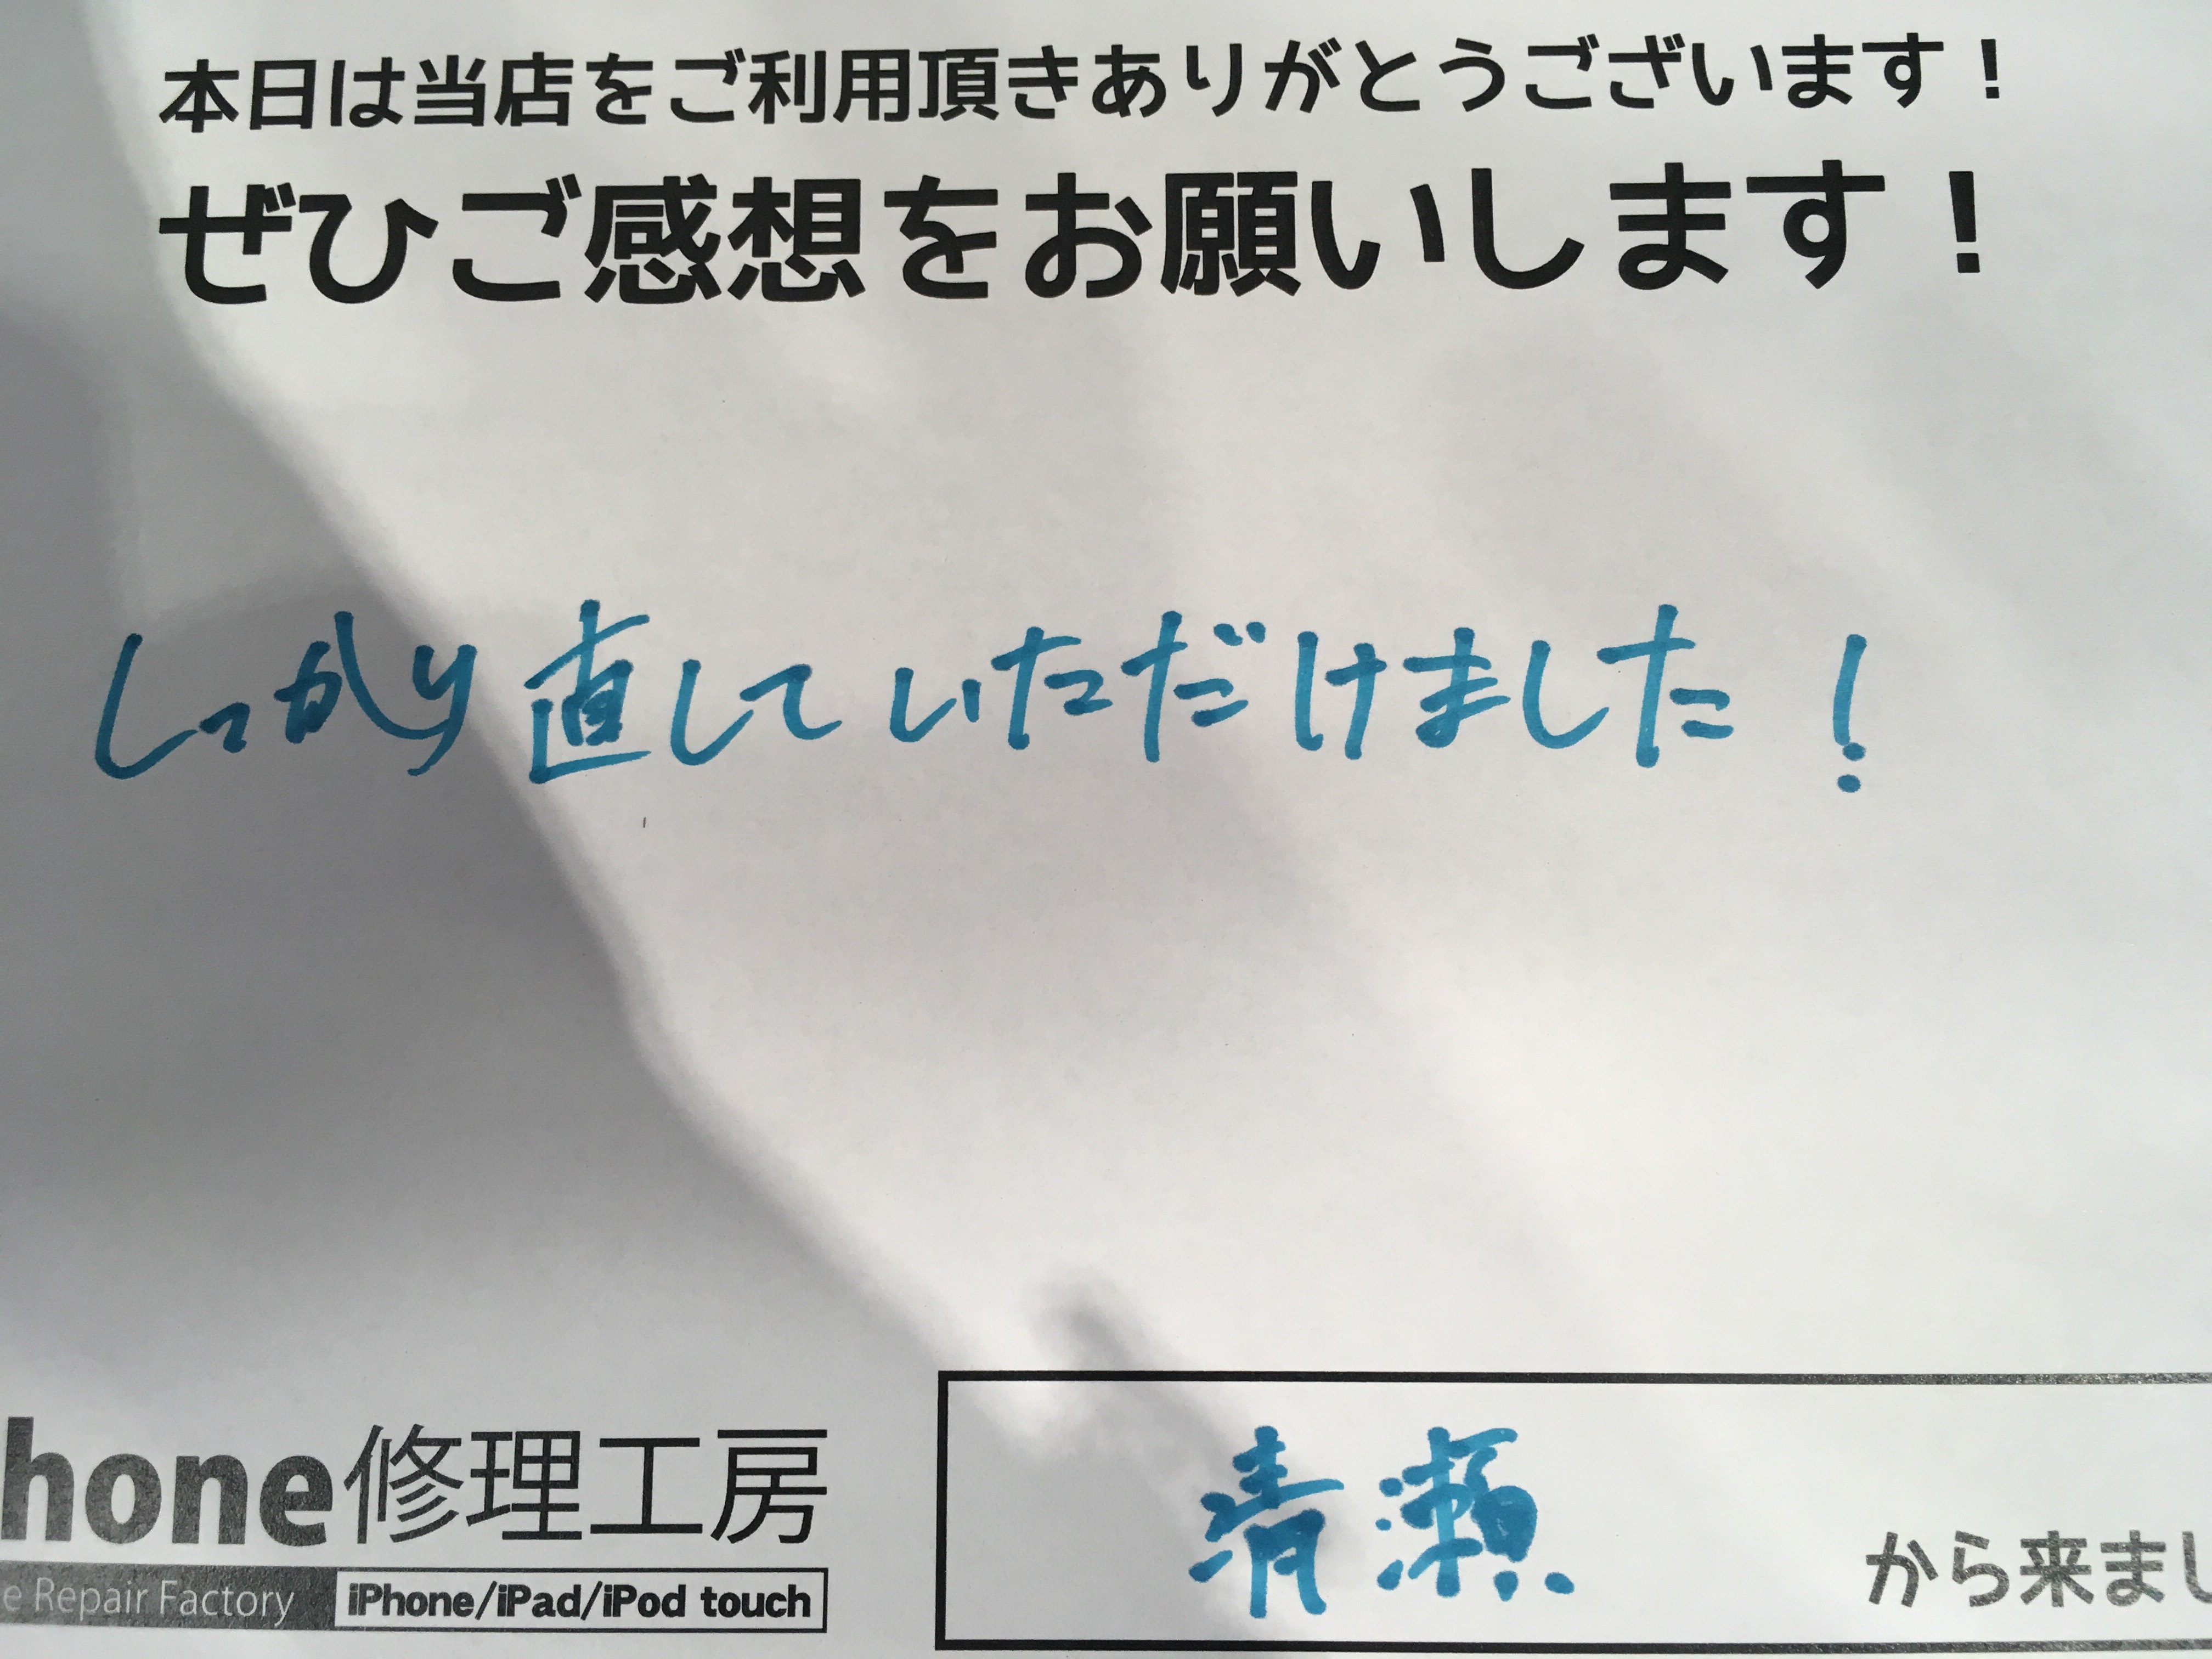 本日は当店をご利用頂きありがとうございます！
ぜひご感想をお願いします！
しっかり直していただけました！
hone修理工房
e Repair Factory iPhone/iPad/iPod touch
清瀬 から来まし